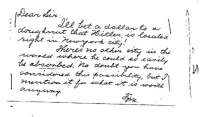 Dear Sir:
I'll bet a dollar to a
doughnut that Hitler is located
right in New York city.
There's no other city in the
world where he could so easily
be absorbed. No doubt you have
considered this possibility, but I
mention it for what it is worth
anyway.